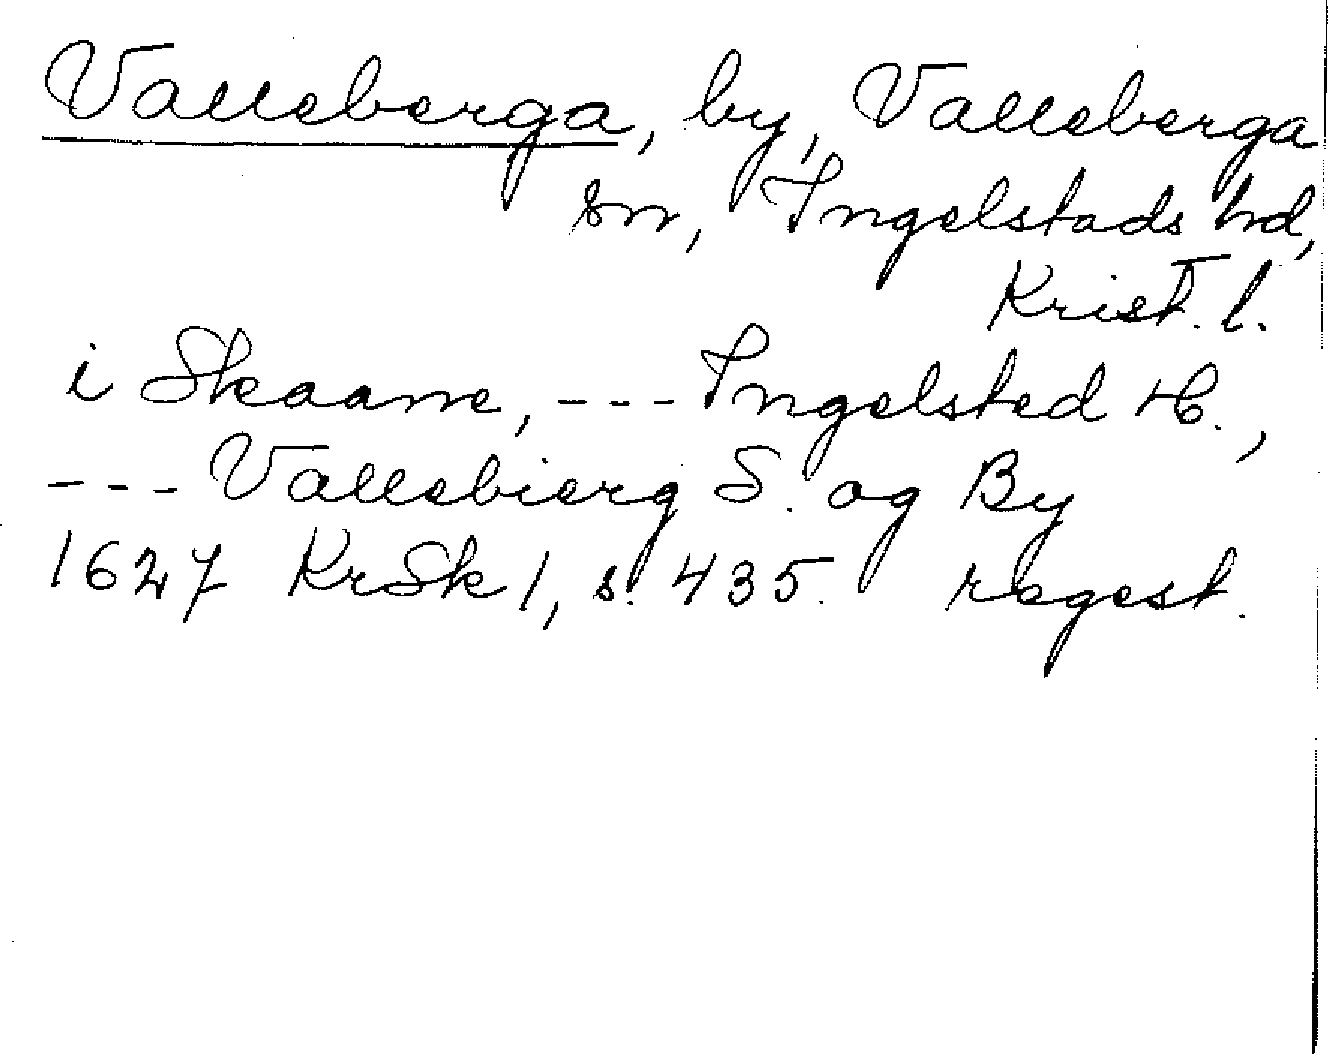 Valleberga, by, Valleberga
sn, Ingelstads hd,
Krist. l.
i Skaane, --- Ingelsted H.,
--- Vallebierg S. og By
1627 KrSk 1, s. 435. regest.